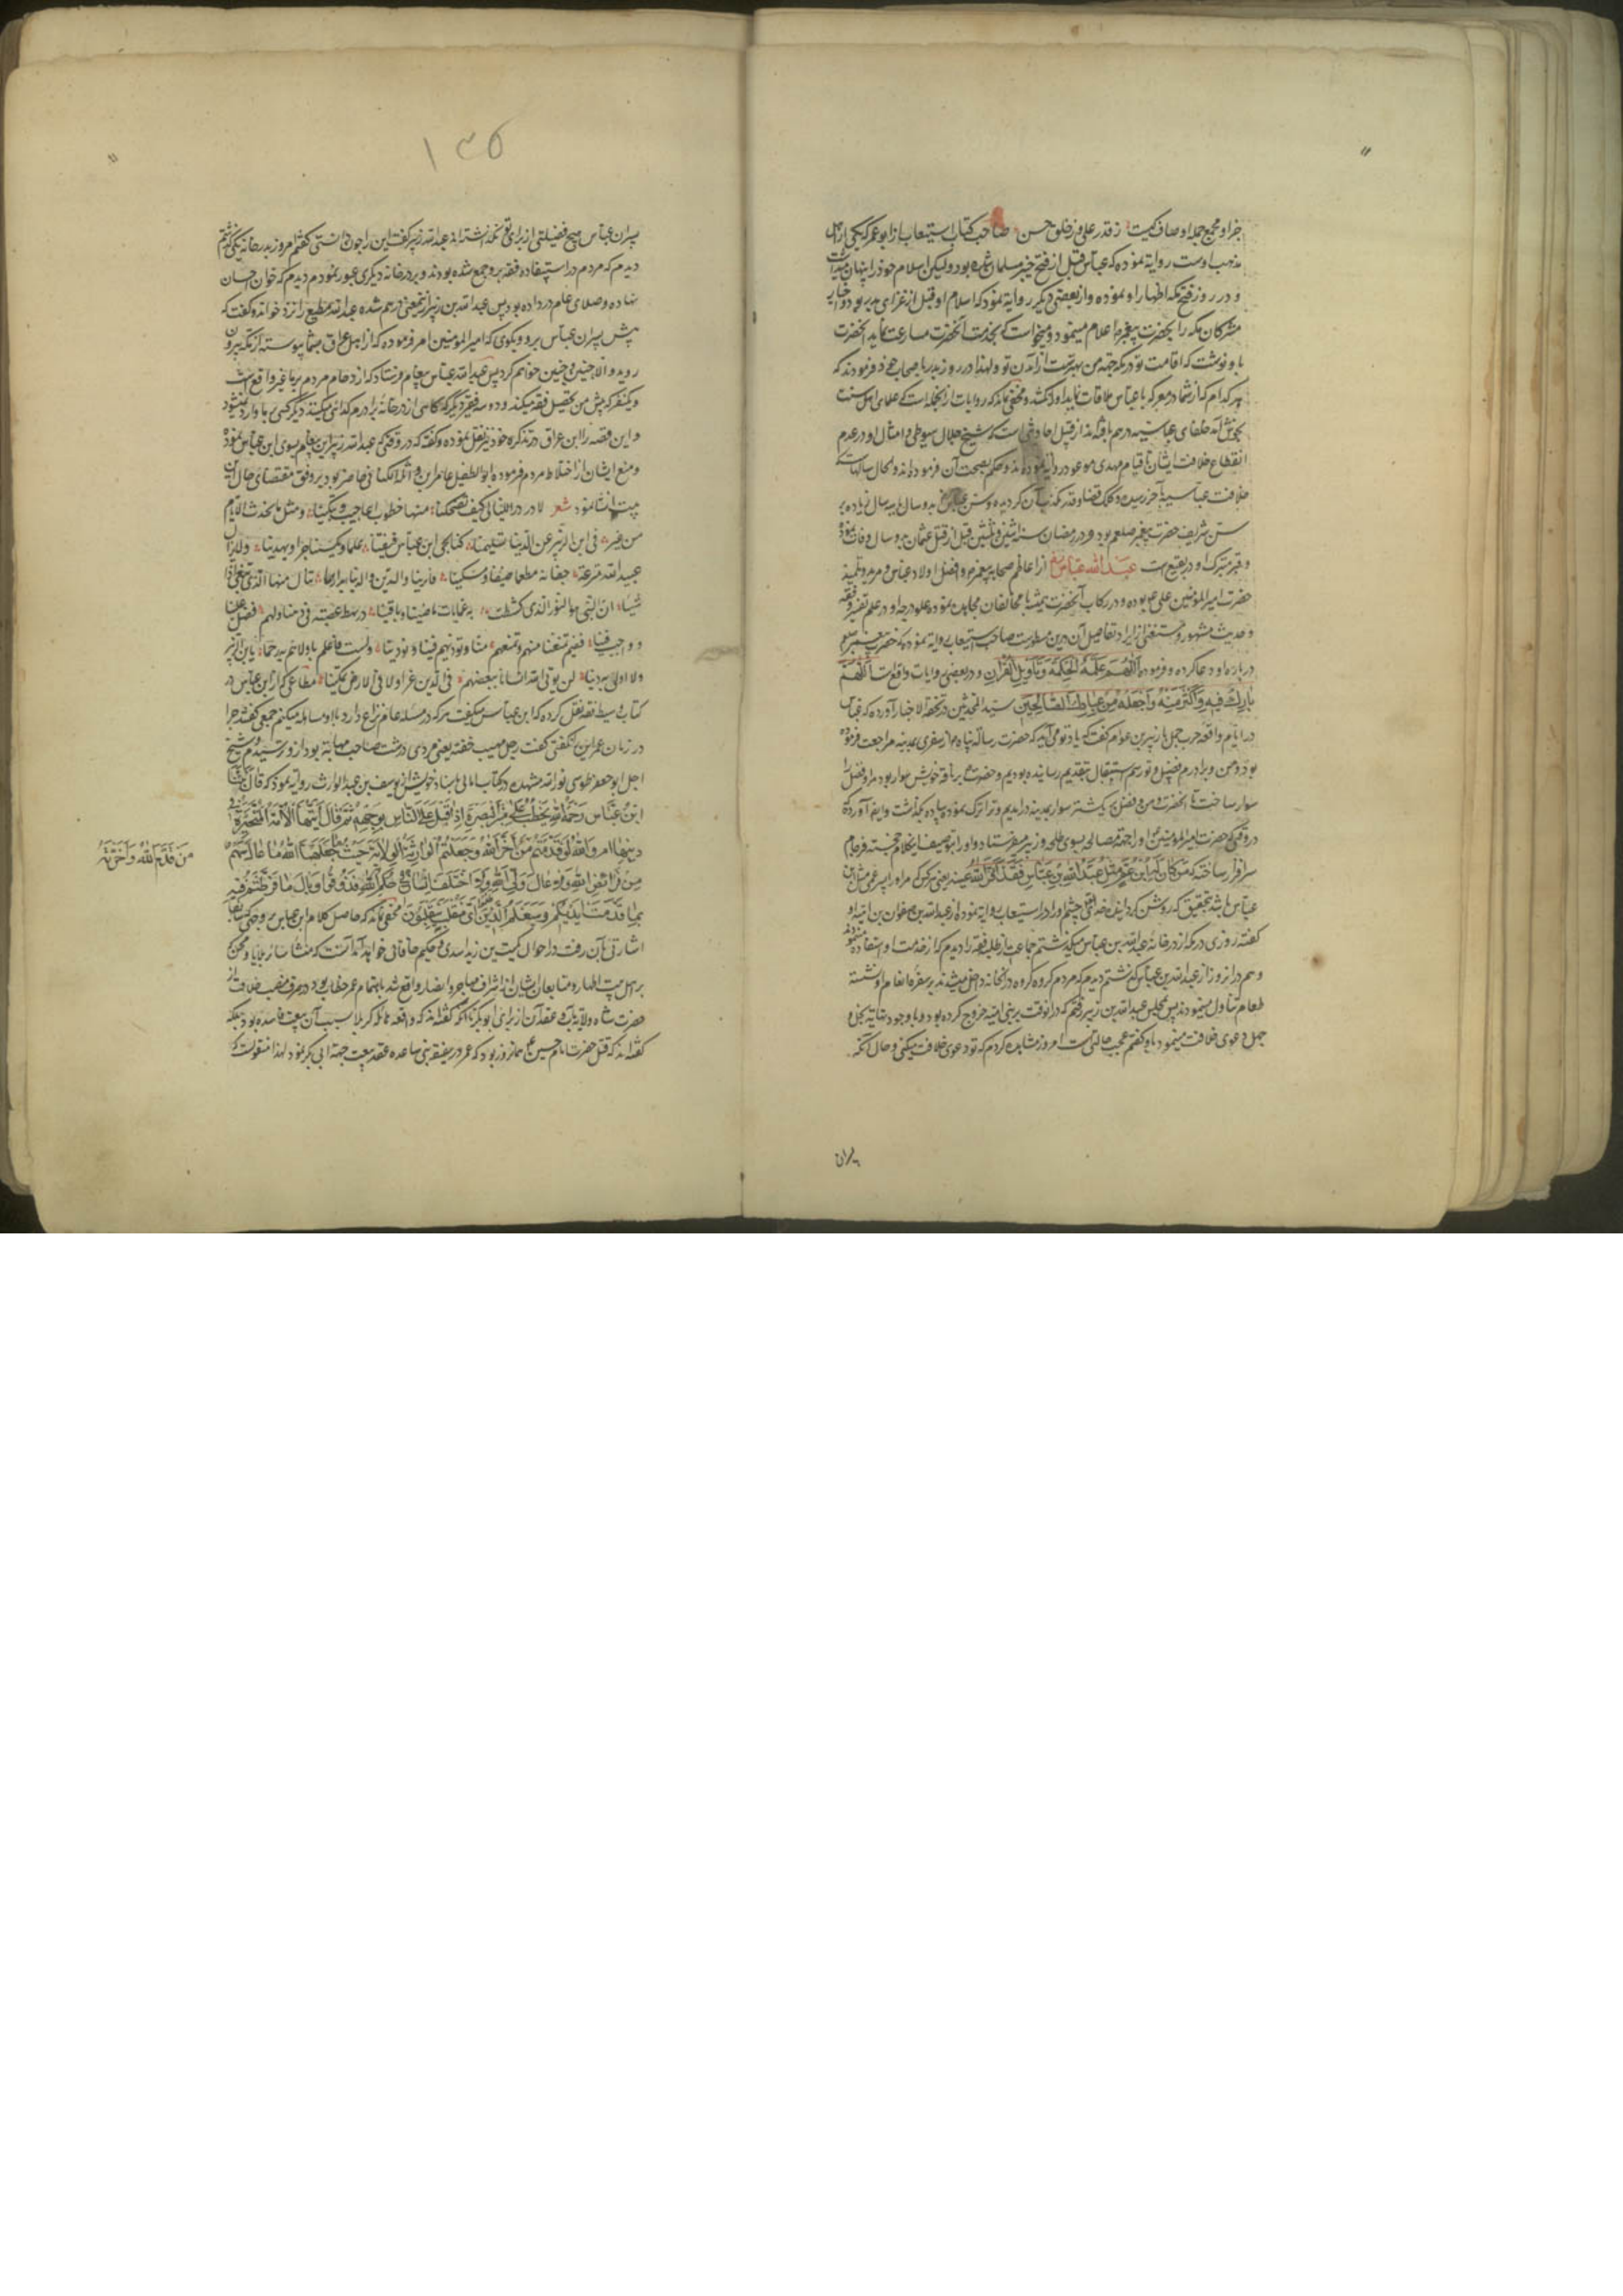 جز او مجمع جمله اوصاف کیست ز قدر علی و ز خلق حسن صاحب کتاب استیعاب از ابو عمر که یکی از اهل
مذهب اوست روایة نموده که عباس قبل از فتح خیبر مسلمان شده بود ولیکن اسلام خود را پنهان میداشت
و در روز فتح مکه اظهار او نموده و از بعضی دیگر روایة نموده که اسلام او قبل از غزای بدر بود و اخبار
مشرکان مکه را بحضرت پیغمبر اعلام مینمود و میخواست که بخدمت آنحضرت مسارعت نماید آنحضرت
باو نوشت که اقامت تو در مکه جهة من بهترست از آمدن تو و لهذا در روز بدر باصحاب خود فرمودند که
هر کدام که از شما در معرکه با عباس ملاقات نماید او را نکشد و مخفی نماند که روایات از انجمله است که علمای اهل سنت
بجوش آمد خلفای عباسیه درهم بافته‌اند از قبیل احادیثی است که شیخ جلال سیوطی و امثال او در عدم
انقطاع خلافت ایشان تا قیام مهدی موعود روایة نموده‌اند و حکم بصحت آن فرموده‌اند و الحال سالهاست که
خلافت عباسیه بآخر رسیده و کلک قضا و قدر مکذب آن گردیده و سن عباس بدو سال یا سه سال زیاده بر
سن شریف حضرت پیغمبر صلعم بود و در رمضان سنه اثنین و ثلثین قبل از قتل عثمان بدو سال وفات نموده
و قبر متبرک او در بقیع است عبد الله عباس از اعاظم صحابه پیغمبر و افضل اولاد عباس و مرید و تلمیذ
حضرت امیر المؤمنین علی ع بوده و در رکاب آنحضرت همیشه با مخالفان مجاهده نموده علو درجه او در علم تفسیر و فقه
و حدیث مشهور و مستغنی از ایراد تفاصیل آن درین سطورست صاحب استیعاب روایة نموده که حضرت پیغمبر صلعم
درباره او دعا کرده و فرموده اللهم علمه الحکمة و تأویل القرآن و در بعضی روایات واقع است اللهم
بارک فیه و اکثر منه و اجعله من عبادک الصالحین سید المحدثین در تحفة الاحبا آورده که عباس
در ایام واقعه حرب جمل از بیر بن عوام گفت که یاد تو می‌آید که حضرت رسالت پناه از سفری بمدینه مراجعت فرموده
بود و من و برادرم فضل و تو رسم استقبال بتقدیم رسانیده بودیم و حضرت بر ناقه خویش سوار بود مرا و فضل را
سوار ساخت تا آنحضرت و من و فضل بر یکشتر سوار بمدینه درآمدیم و ترا ترک نمود پیاده بگذاشت و ایضا آورده که
در وقتی که حضرت امیر المؤمنین او را جهة مصالحه بسوی طلحه و زبیر میفرستاد او را بتوصیف اینکلام خجسته فرجام
سرافراز ساخته که من کان له ابن عم مثل عبد الله بن عباس فقد اقر الله عینه یعنی هر کس که مر او را پسر عمی مثل ابن
عباس باشد بتحقیق که روشن گردانید خدایتعالی چشم او را و در استیعاب روایة نموده از عبد الله بن صفوان بن امیه او
گفته روزی در مکه از در خانه عبد الله بن عباس میگذشتم جماعتی از طلبه فقه را دیدم که از خدمت او استفاده مینمودند
و هم در انروز از عبید الله بن عباس گذشتم دیدم که مردم گروه گروه در انخانه داخل میشدند بر سفره انعام او نشسته
طعام تناول مینمودند پس بمجلس عبد الله بن زبیر رفتم که در انوقت بر بنی امیه خروج کرده بود و با وجود نهایة بخل و
جهل دعوی خلافت مینمود باو گفتم عجب حالتیست امروز مشاهده کردم که تو دعوی خلافت میکنی و حال آنکه
پسران
۱۳۵
پسران عباس هیچ فضیلتی از برای تو نگذاشته‌اند عبد الله زبیر گفت این را چون دانستی گفتم امروز بدر خانه یکی گذشتم
دیدم که مردم در استفاده فقه برو جمع شده بودند و بر در خانه دیگری عبور نمودم دیدم که خوان احسان
نهاده و صلای عام در داده بود پس عبد الله بن زبیر ازینمعنی درهم شده عبد الله مطیع را نزد خوانده گفت که
پیش پسران عباس برو و بگوی که امیر المومنین امر فرموده که از اهل عراق بشما پیوسته از مکه بیرون
روید و الا چنین و چنین خواهم کرد پس عبد الله عباس پیغام فرستاد که ازدحام مردم بر ما غیر واقع است
و یکنفر که پیش من تحصیل فقه میکند و دو سه فقیر دیگر که گاهی از در خانه برادرم گدائی میکنند دیگر کسی بما وارد نمیشود
و این قصه را ابن عراق در تذکره خود نیز نقل نموده و گفته که در وقتی که عبد الله زبیر این پیغام بسوی ابن عباس نموده
و منع ایشان از اختلاط مردم فرموده ابو الطفیل عامر ابن واثله الکنانی حاضر بود بر وفق مقتضای حال این
بیت انشا نمود شعر لا در در اللیالی کیف تضحکنا منها خطوب اعاجیب و تبکینا و مثل ما یحدث الایام
من غیر فی ابن الزبیر عن الدنیا تسلینا کنا نجی ابن عباس فیفتینا علما و یکسبنا اجرا و یهدینا و لا یزال
عبید الله مترعة جفانه مطعما ضیفا و مسکینا فالدین و الدنیا بدارهما ننال منها الذی نبغی اذا
شینا ان النبی هو النور الذی کشطت به عمایات ماضینا و باقینا و رهطه عصمة فی دیننا و لهم فضل علینا
و واجب فینا ففیم تمنعنا منهم و تمنعهم منا و توذیهم فینا و توذینا و لست فاعلم باولاهم به رحما یابن الزبیر
و لا اولی به دینا لن یوتی الله انسانا ببغضهم فی الدین عزا و لا فی الارض تمکینا
کتاب وسیط فقه نقل کرده که ابن عباس میگفت هر که در مسئله عامه نزاع دارد با او مباهله میکنم جمعی گفتند چرا
در زمان عمر این نگفتی گفت رجل مهیب خفته یعنی مردی درشت صاحب مهابة بود ازو ترسیدم و شیخ
اجل ابو جعفر طوسی نور الله مشهده در کتاب امالی باسناد خویش از یوسف بن عبد الوارث روایه نموده که قال بینا
ابن عباس رحمه الله یخطب علی منبر البصرة اذ اقبل علی الناس بوجهه ثم قال ایتها الامة المتحیرة فی
دینها اما و الله لو قدمتم من اخر الله و جعلتم الوارثة و الولایة حیث جعلها الله ما عال سهم
من فرائض الله و لا عال ولی الله و لا اختلف اثنان فی حکم الله فذوقوا وبال ما فرطتم فیه
بما قدمت ایدیکم و سیعلم الذین ظلموا ای منقلب ینقلبون مخفی نماند که حاصل کلام ابن عباس بر وجهی که سابقا
اشارتی بآن رفت در احوال کمیت بن زید اسدی و حکیم خاقانی خواهد آمد آنست که منشا سایر بلایا و محن که
بر اهل بیت اطهار و متابعان ایشان از اشراف مهاجر و انصار واقع شد باهتمام عمر خطاب بود در صرف منصب خلافت از
حضرت شاه ولایة مآب و عقد آن از برای ابو بکر تا آنکه گفته‌اند که واقعه هائله کربلا بسبب آن بیعت فاسده بود بلکه
گفته‌اند که قتل حضرت امام حسین ع همانروز بود که عمر در سقیفه بنی ساعده عقد بیعت جهة ابی بکر نمود لهذا منقولست که
من قدم الله و اخرتم